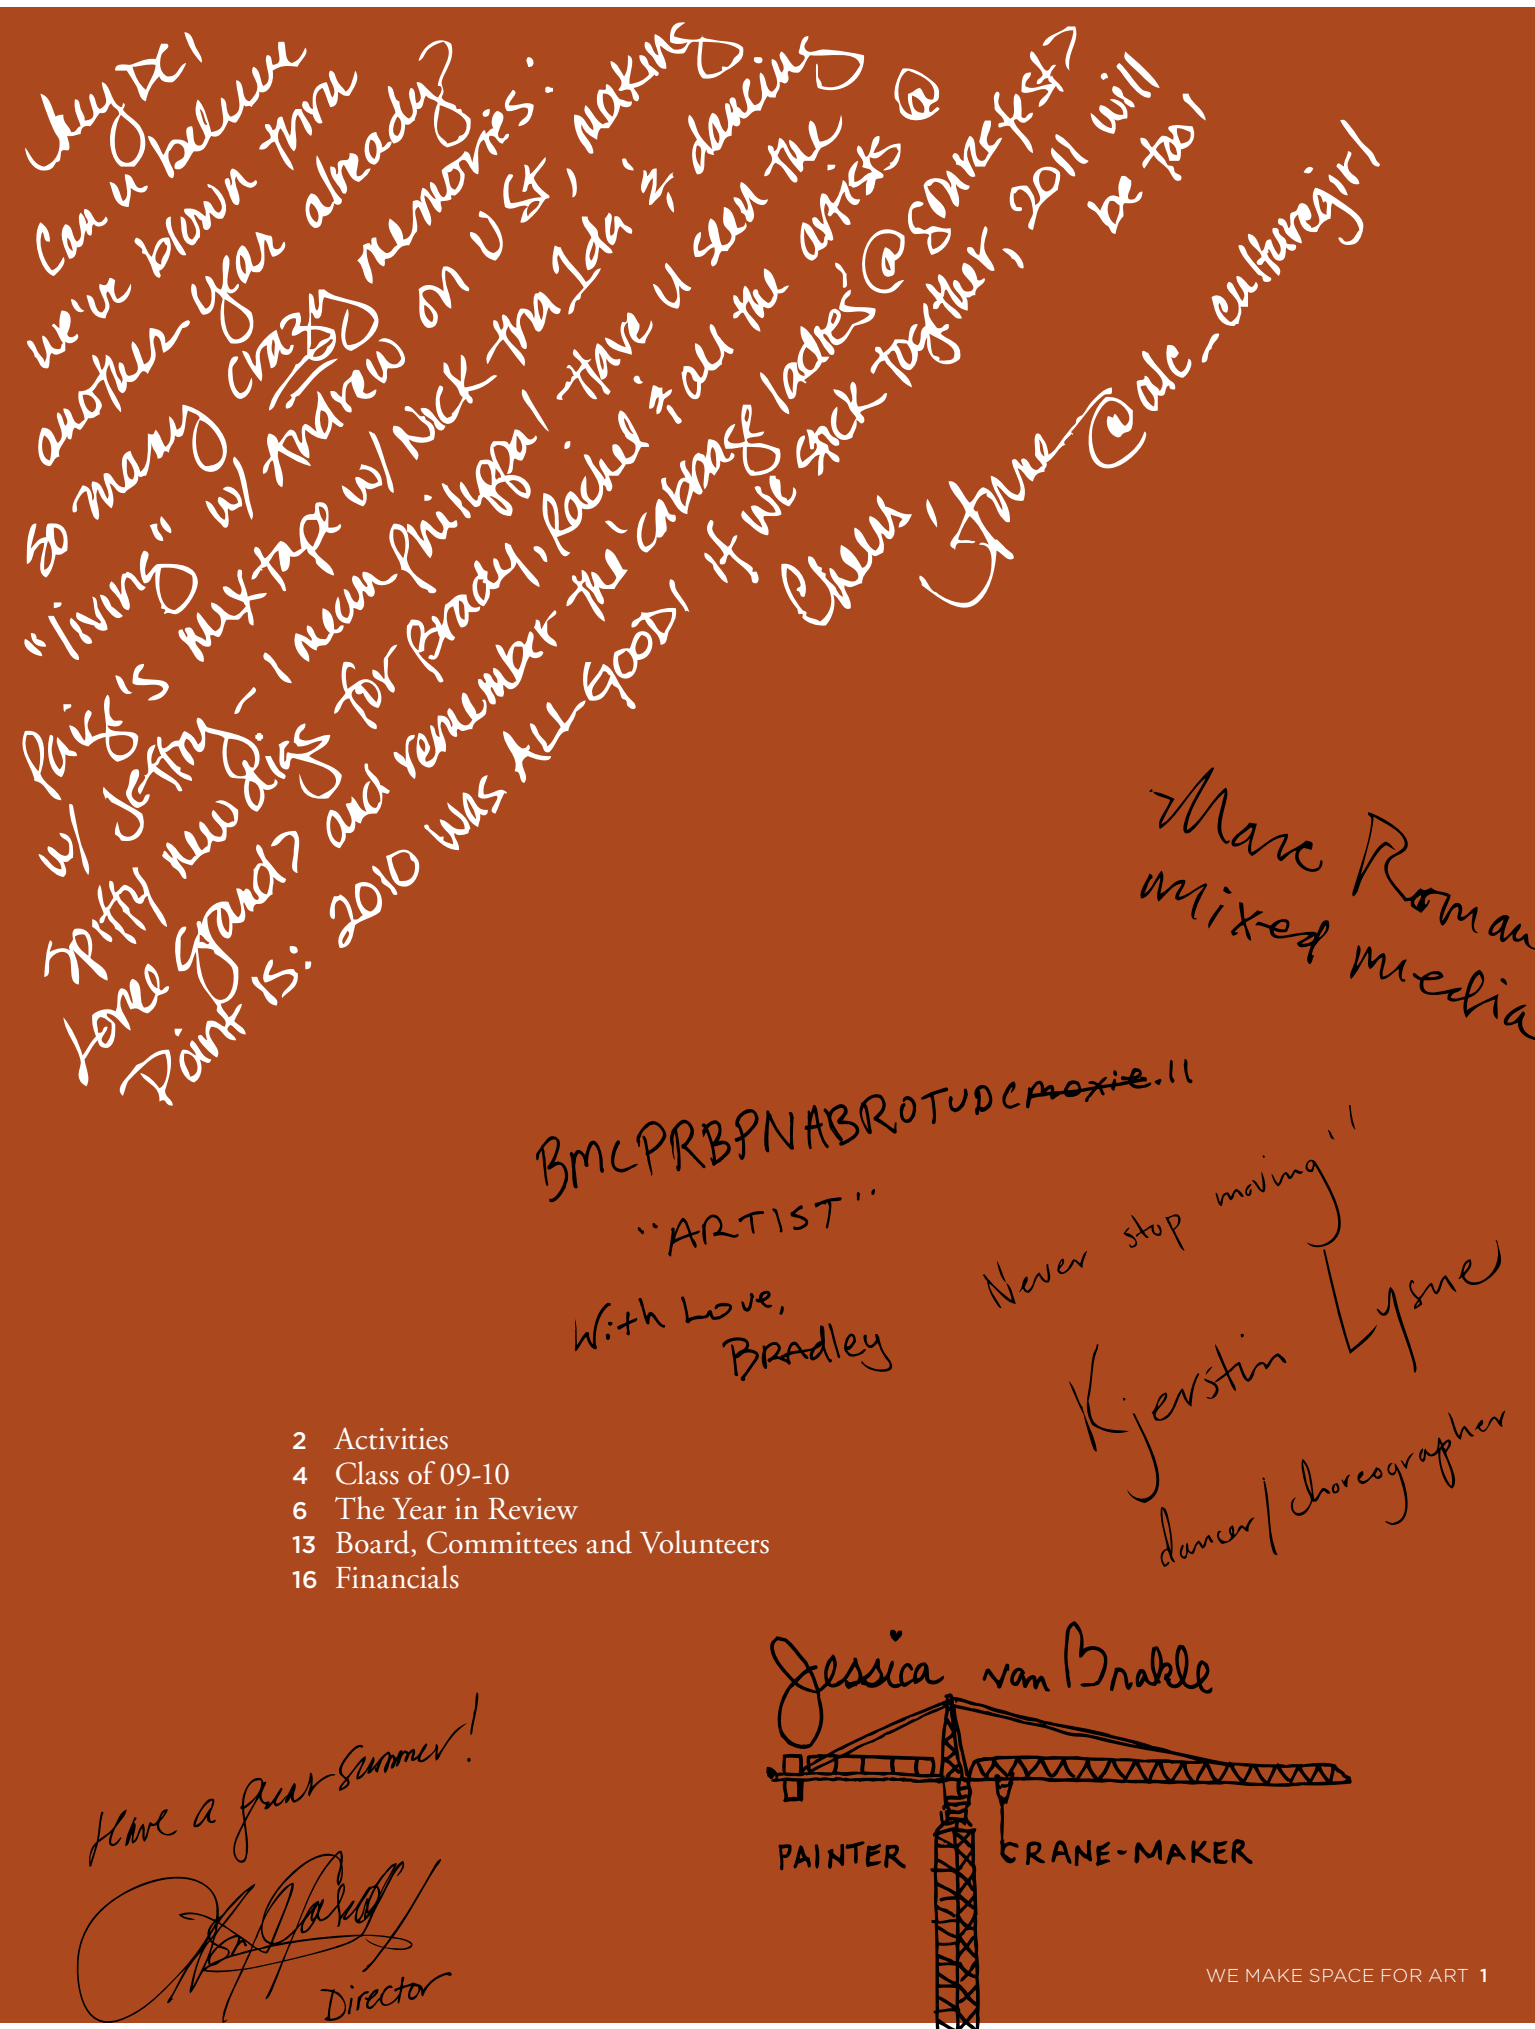 Hey DC!
Can u believe
we've blown thru
another year already?
So many crazy memories:
"living" w/ Andrew on U St, making
Paige's mixtape w/ Nick tha 1da & dancing
w/ Jeffry - I mean Philippa! Have u seen the
spiffy new digs for Brady, Rachel & all the artists @
and remember the 'cabbage ladies' @ Sourcefest?
Point is: 2010 was ALL GOOD! If we stick together, 2011 will
be too!
Cheers,
@alc_culturegirl
Marc Roman
mixed media
BMCPRBPNABROTUDCmoxie.11
"ARTIST"
With Love,
Bradley
Never stop moving"
Kjerstin Lysne
dancer/choreographer
2 Activities
4 Class of 09-10
6 The Year in Review
13 Board, Committees and Volunteers
16 Financials
Jessica van Brakle
PAINTER CRANE-MAKER
Have a great summer!
Director
WE MAKE SPACE FOR ART 1